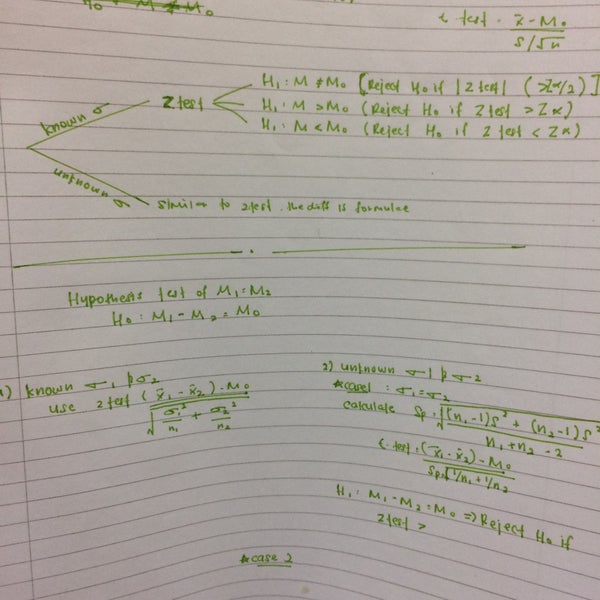 t test = x̄ - M₀ / s/√n
H₀ : M ≠ M₀
known σ
Z test
H₁ : M ≠ M₀ [Reject H₀ if |Z test| (>Zα/2)]
H₁ : M > M₀ (Reject H₀ if Z test > Zα)
H₁ : M < M₀ (Reject H₀ if Z test < Zα)
unknown σ
similar to z test. the diff is formulae
Hypothesis test of M₁=M₂
H₀ : M₁ - M₂ = M₀
1) known σ₁ & σ₂
use z test (x̄₁ - x̄₂) - M₀ / √(σ₁²/n₁ + σ₂²/n₂)
2) unknown σ1 & σ2
*case1 : σ₁ = σ₂
calculate Sp = √((n₁-1)s² + (n₂-1)s² / n₁+n₂-2)
t test = (x̄₁ - x̄₂) - M₀ / Sp√(1/n₁+1/n₂)
H₁ : M₁ - M₂ = M₀ => Reject H₀ if
Z test >
*case 2